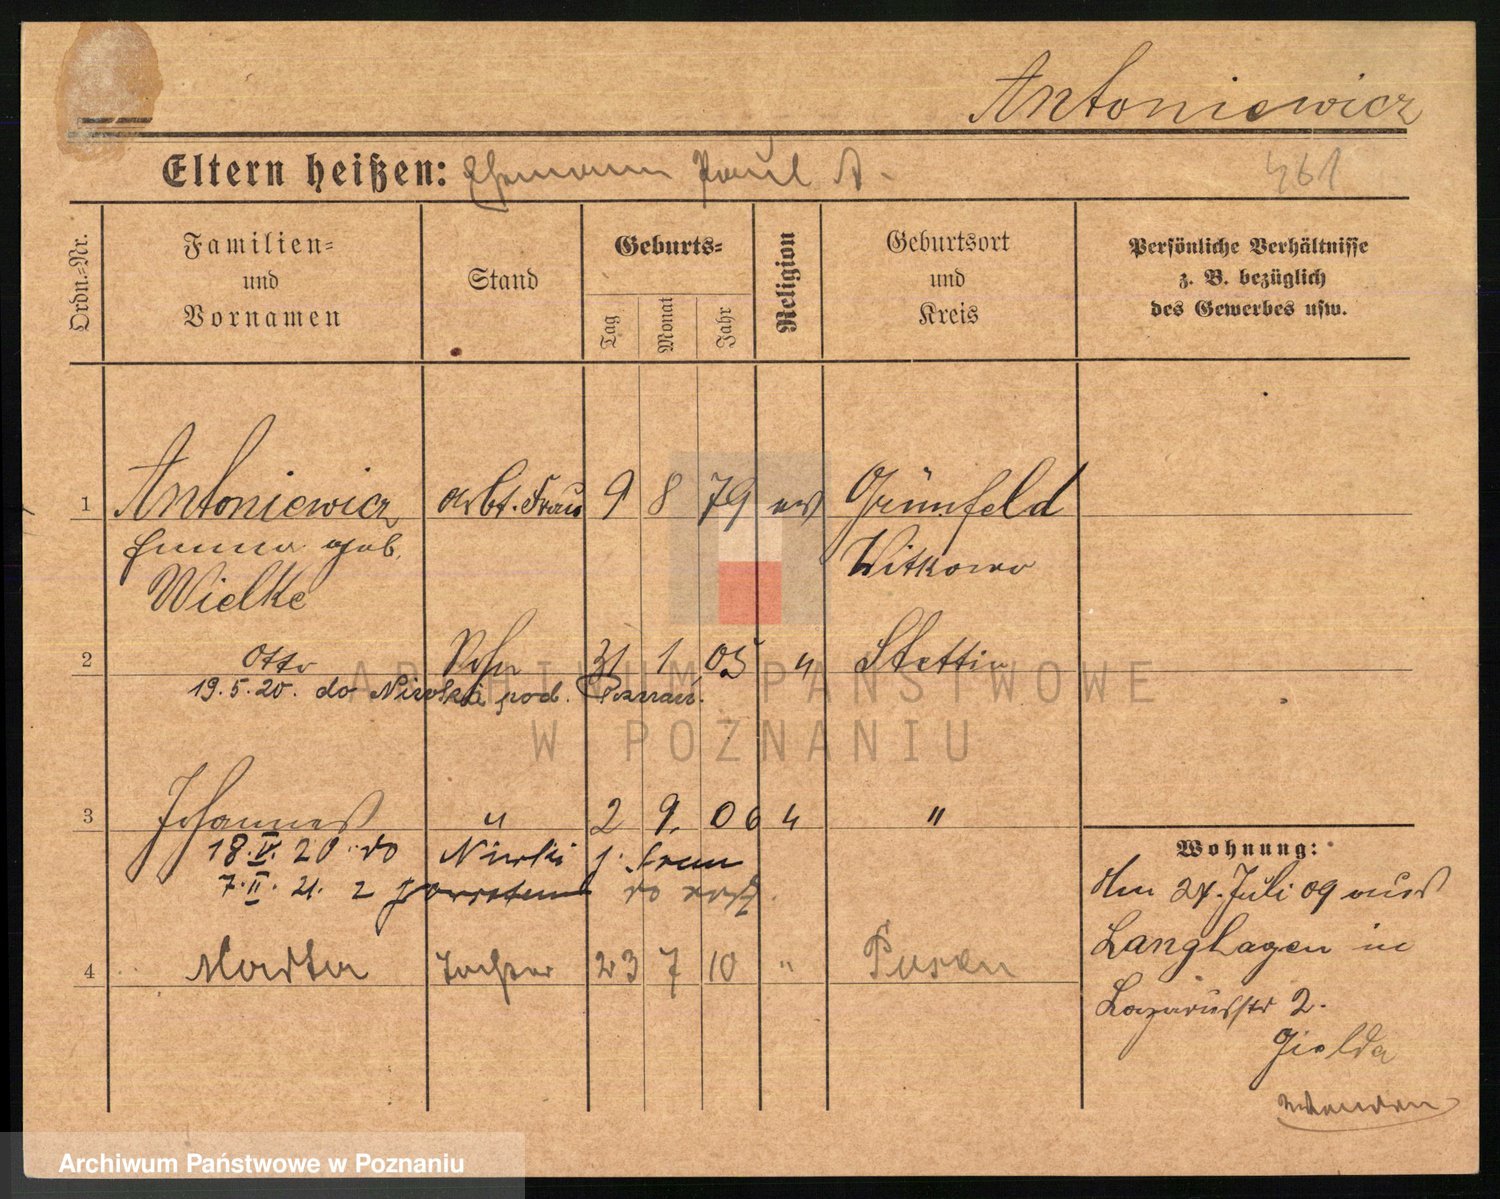 Antoniewicz
Eltern heißen: Ehemann Paul A.
461
Ordn.-Nr.
Familien-
und
Vornamen
Stand
Geburts-
Tag
Monat
Jahr
Religion
Geburtsort
und
Kreis
Persönliche Verhältnisse
z. B. bezüglich
des Gewerbes usw.
1 Antoniewicz arbt. Frau 9 8 79 ev Grünfeld
Emma geb. Witkowo
Wielke
2 Otto Sohn 31 1 05 " Stettin
19.5.20. do pod. Poznań.
ARCHIWUM PAŃSTWOWE
W POZNANIU
3 Johannes " 2 9. 06 " "
18.V.20 do
7.II.21. z
4 Martha Tochter 23 7 10 " Posen
Wohnung:
Am 27. Juli 09 aus
Langhagen in
Lazarusstr 2.
wenden
Archiwum Państwowe w Poznaniu